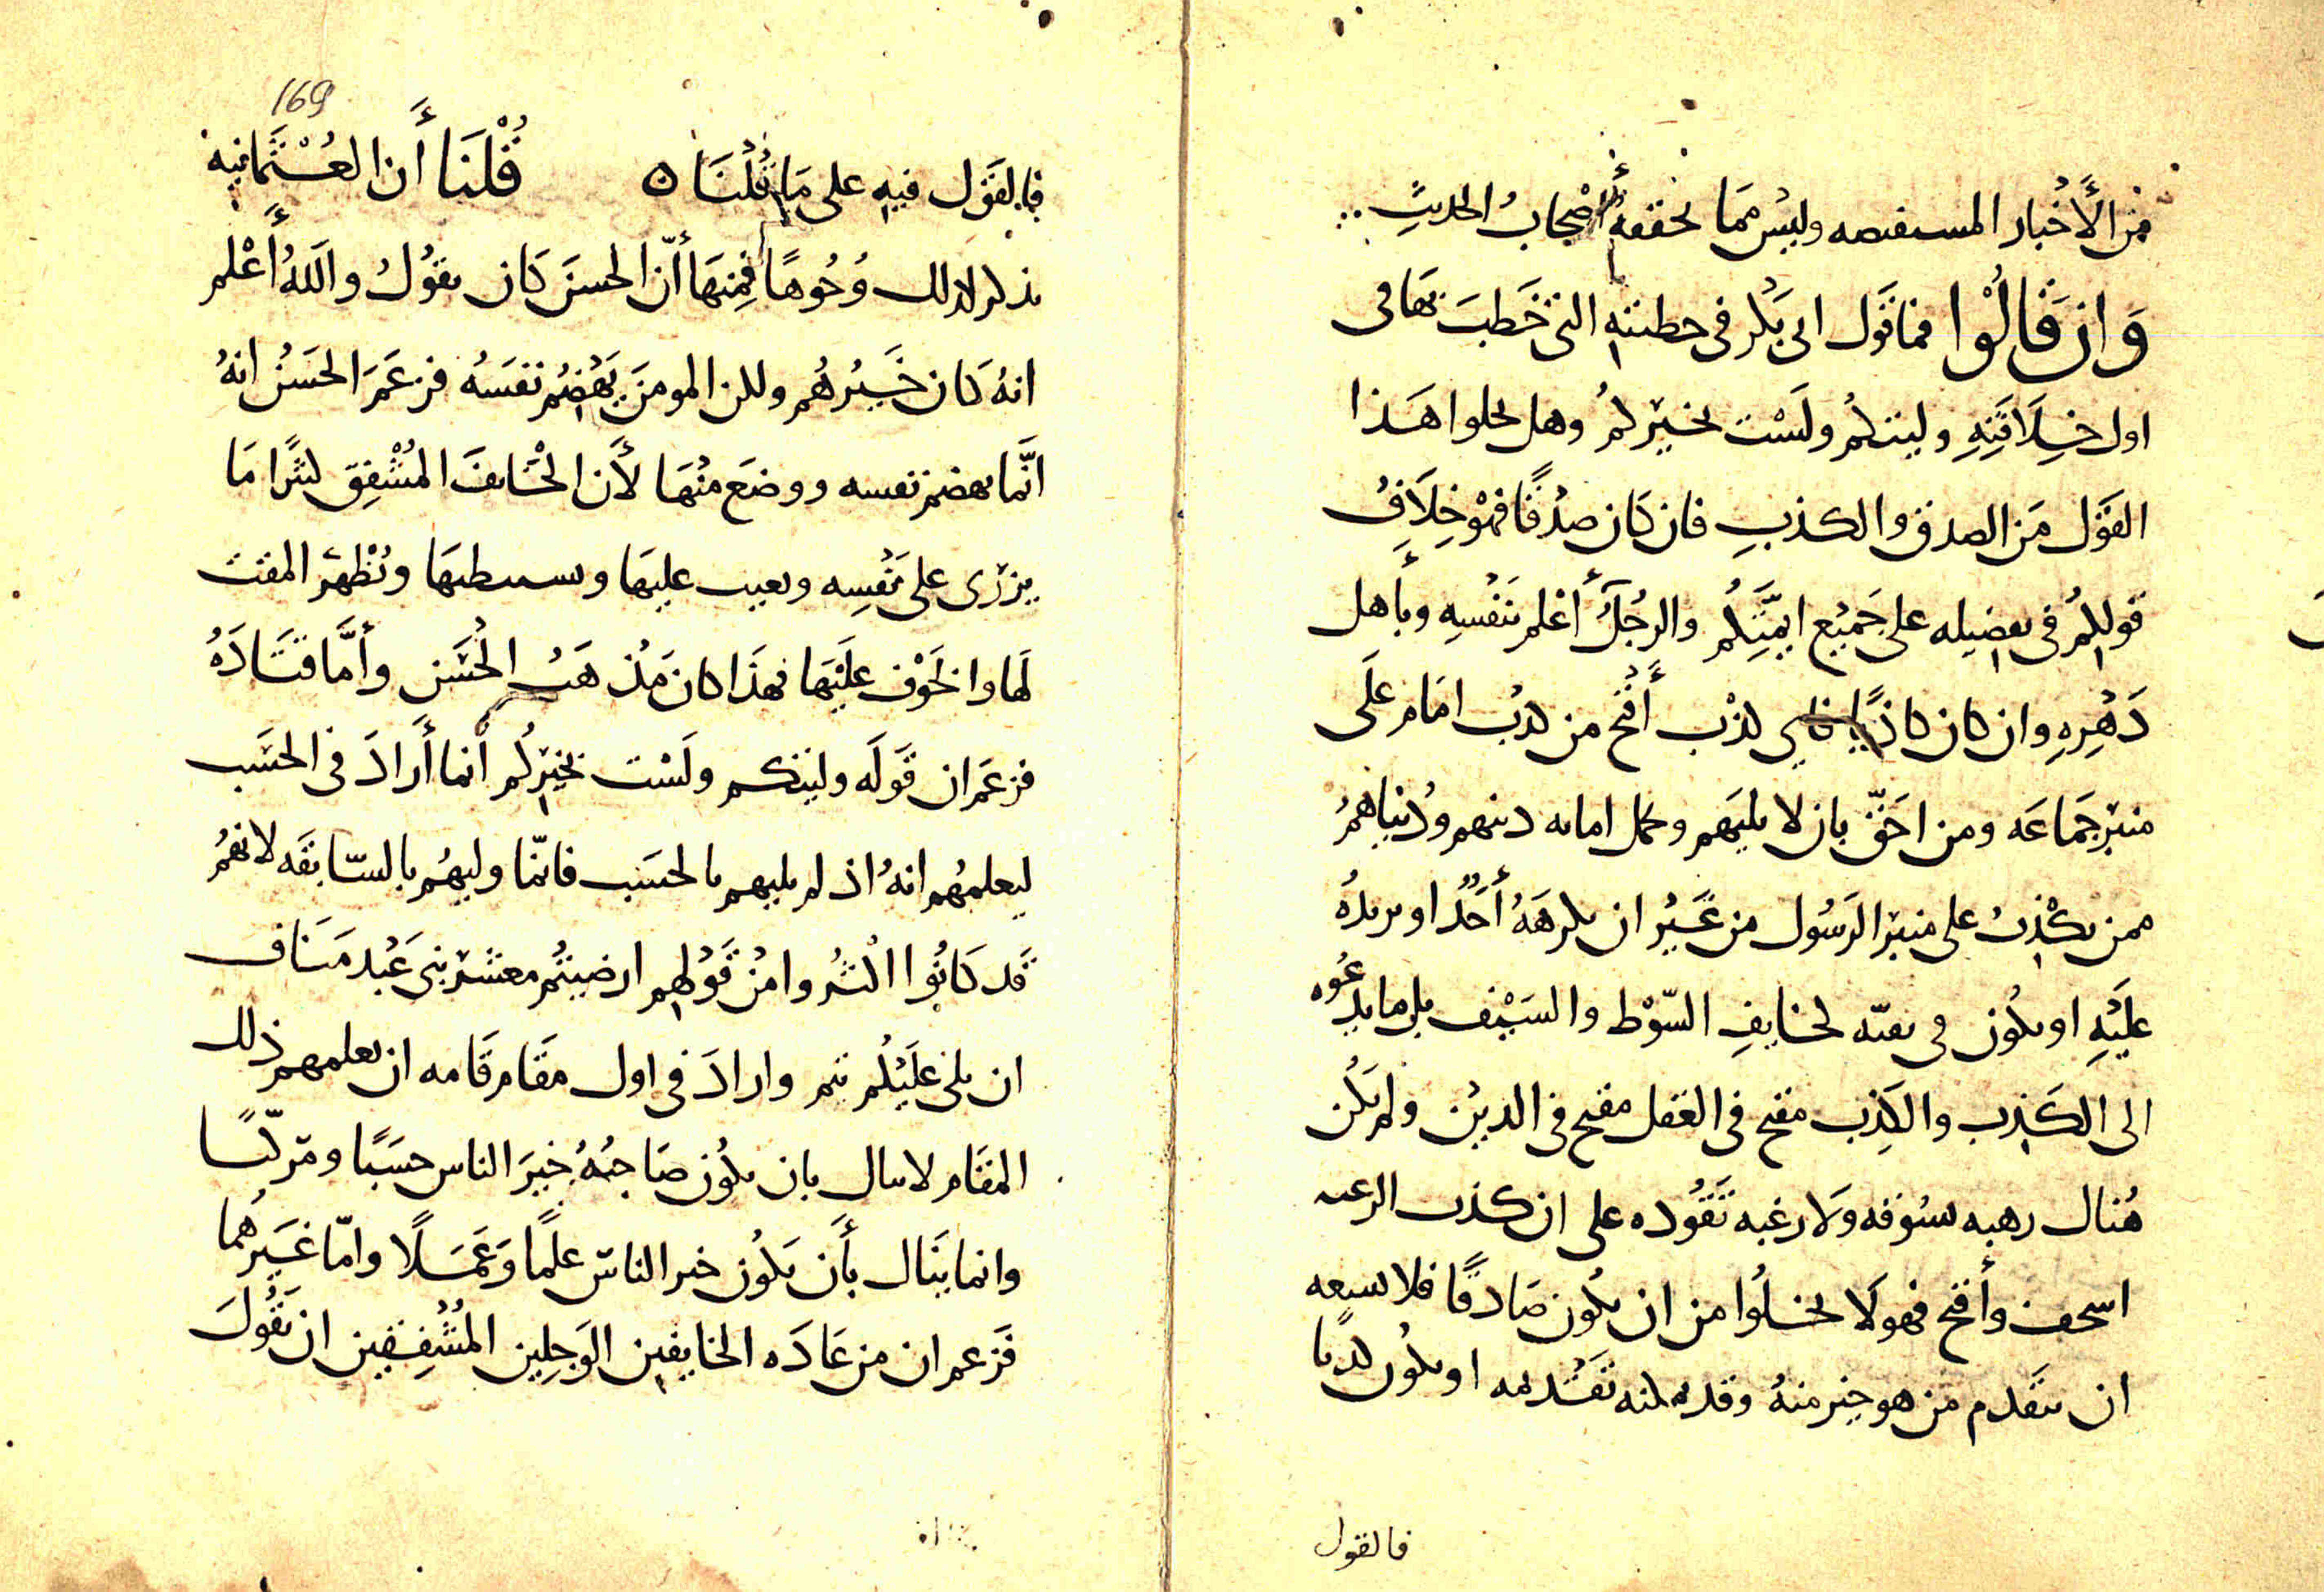 من الأخبار المستفيضه وليس مما يحققه أصحاب الحديث
وَإن قَالُوْا فما قَول ابى بَكر فى خطبته التى خَطبَ بهَا فى
اول خِلَافَتِهِ وليتكم ولَسْت بخيركمُ وهل يخلوا هَذا
القَوْل مَن الصدق والكذبِ فان كَان صدْقًا فهوْ خِلَافُ
قولكمُ فى تفضيله على جَميْع ايمَّتِكُم والرجُلُ أعْلم بنَفْسِهِ وبأهل
دَهْرِهِ وان كان كاذبًا فاى كذْب أقْبح من كذب امَام علَى
منبر جَمَاعَه ومن احَقّ بان لا يليَهم وتحمل امانه دينهم ودُنياهمُ
ممن يكْذبُ على منبر الرسُول من غَيْر ان يكرهَهُ أحَدٌ او يريدُهُ
عليَْهِ او يكُون فى تقيّه لخايفِ السّوْط والسَيْف بل ما يدعُوه
الى الكَذِب والكَذِب مقبح فى العَقل مقبح فى الديْن ولم يَكُن
هُناك رهبه تسُوقه وَلا رغبه تَقُوده على ان كذب الرغبه
اسخف وأقبح فهو لَا يخلُوا من ان يكُون صَادقًا فلا يسعه
ان يتقَدم مَن هو خير منهُ وقد يمكنه تقَدمه او يكُون كذبا
فالقول
169
فالقَول فيهِ على مَا قُلْنَا ه قُلْنَا أَن العُثْمَانيه
تذكر لذلك وُجُوهًا فمِنهَا أنّ الحسَن كَان يقوُلُ واللهُ أَعْلم
انهُ كَان خَيْرهُم ولكن المومنَ يَهْضِمُ نفسَهُ فزعَمَ الحَسَنُ انهُ
انَّما يهضم نفسه ووضعَ منْهَا لأَن الخَايفَ المُشْفِق كثيرًا مَا
يزرى على نفْسِه ويعيب عليهَا ويستبطيهَا ويُظْهر المقت
لهَا والخَوْف عليْهَا فهذَا كان مَذهَبُ الحُسَن وأمَّا قتَادَهُ
فزعَم ان قَولَه وليتكم ولَسْت بخيركُم انما أَرادَ فى الحسَب
ليعلمهُم انهُ اذ لم يليهم بالحسَب فانّما وليهُم بالسّابقَه لانهمُ
قَد كَانُوا اكثرُوا منْ قَوْلهم ارضيتُم معشر بنى عَبْد مَنَاف
ان يلى عليَْكُم تيم وارادَ فى اول مقَام قَامه ان يعلمهم ذلك
المقَام لا ينال بان يكُون صَاحبُهُ خيرَ الناس حسَبًا ومَركبًا
وانما ينَال بأَن يَكُون خير الناس علمًا وَعَمَلًا وامّا غَيَرهُما
فَزعم ان من عَادَه الخايفين الوَجِلِين المُشْفِقين ان يَقُولَ